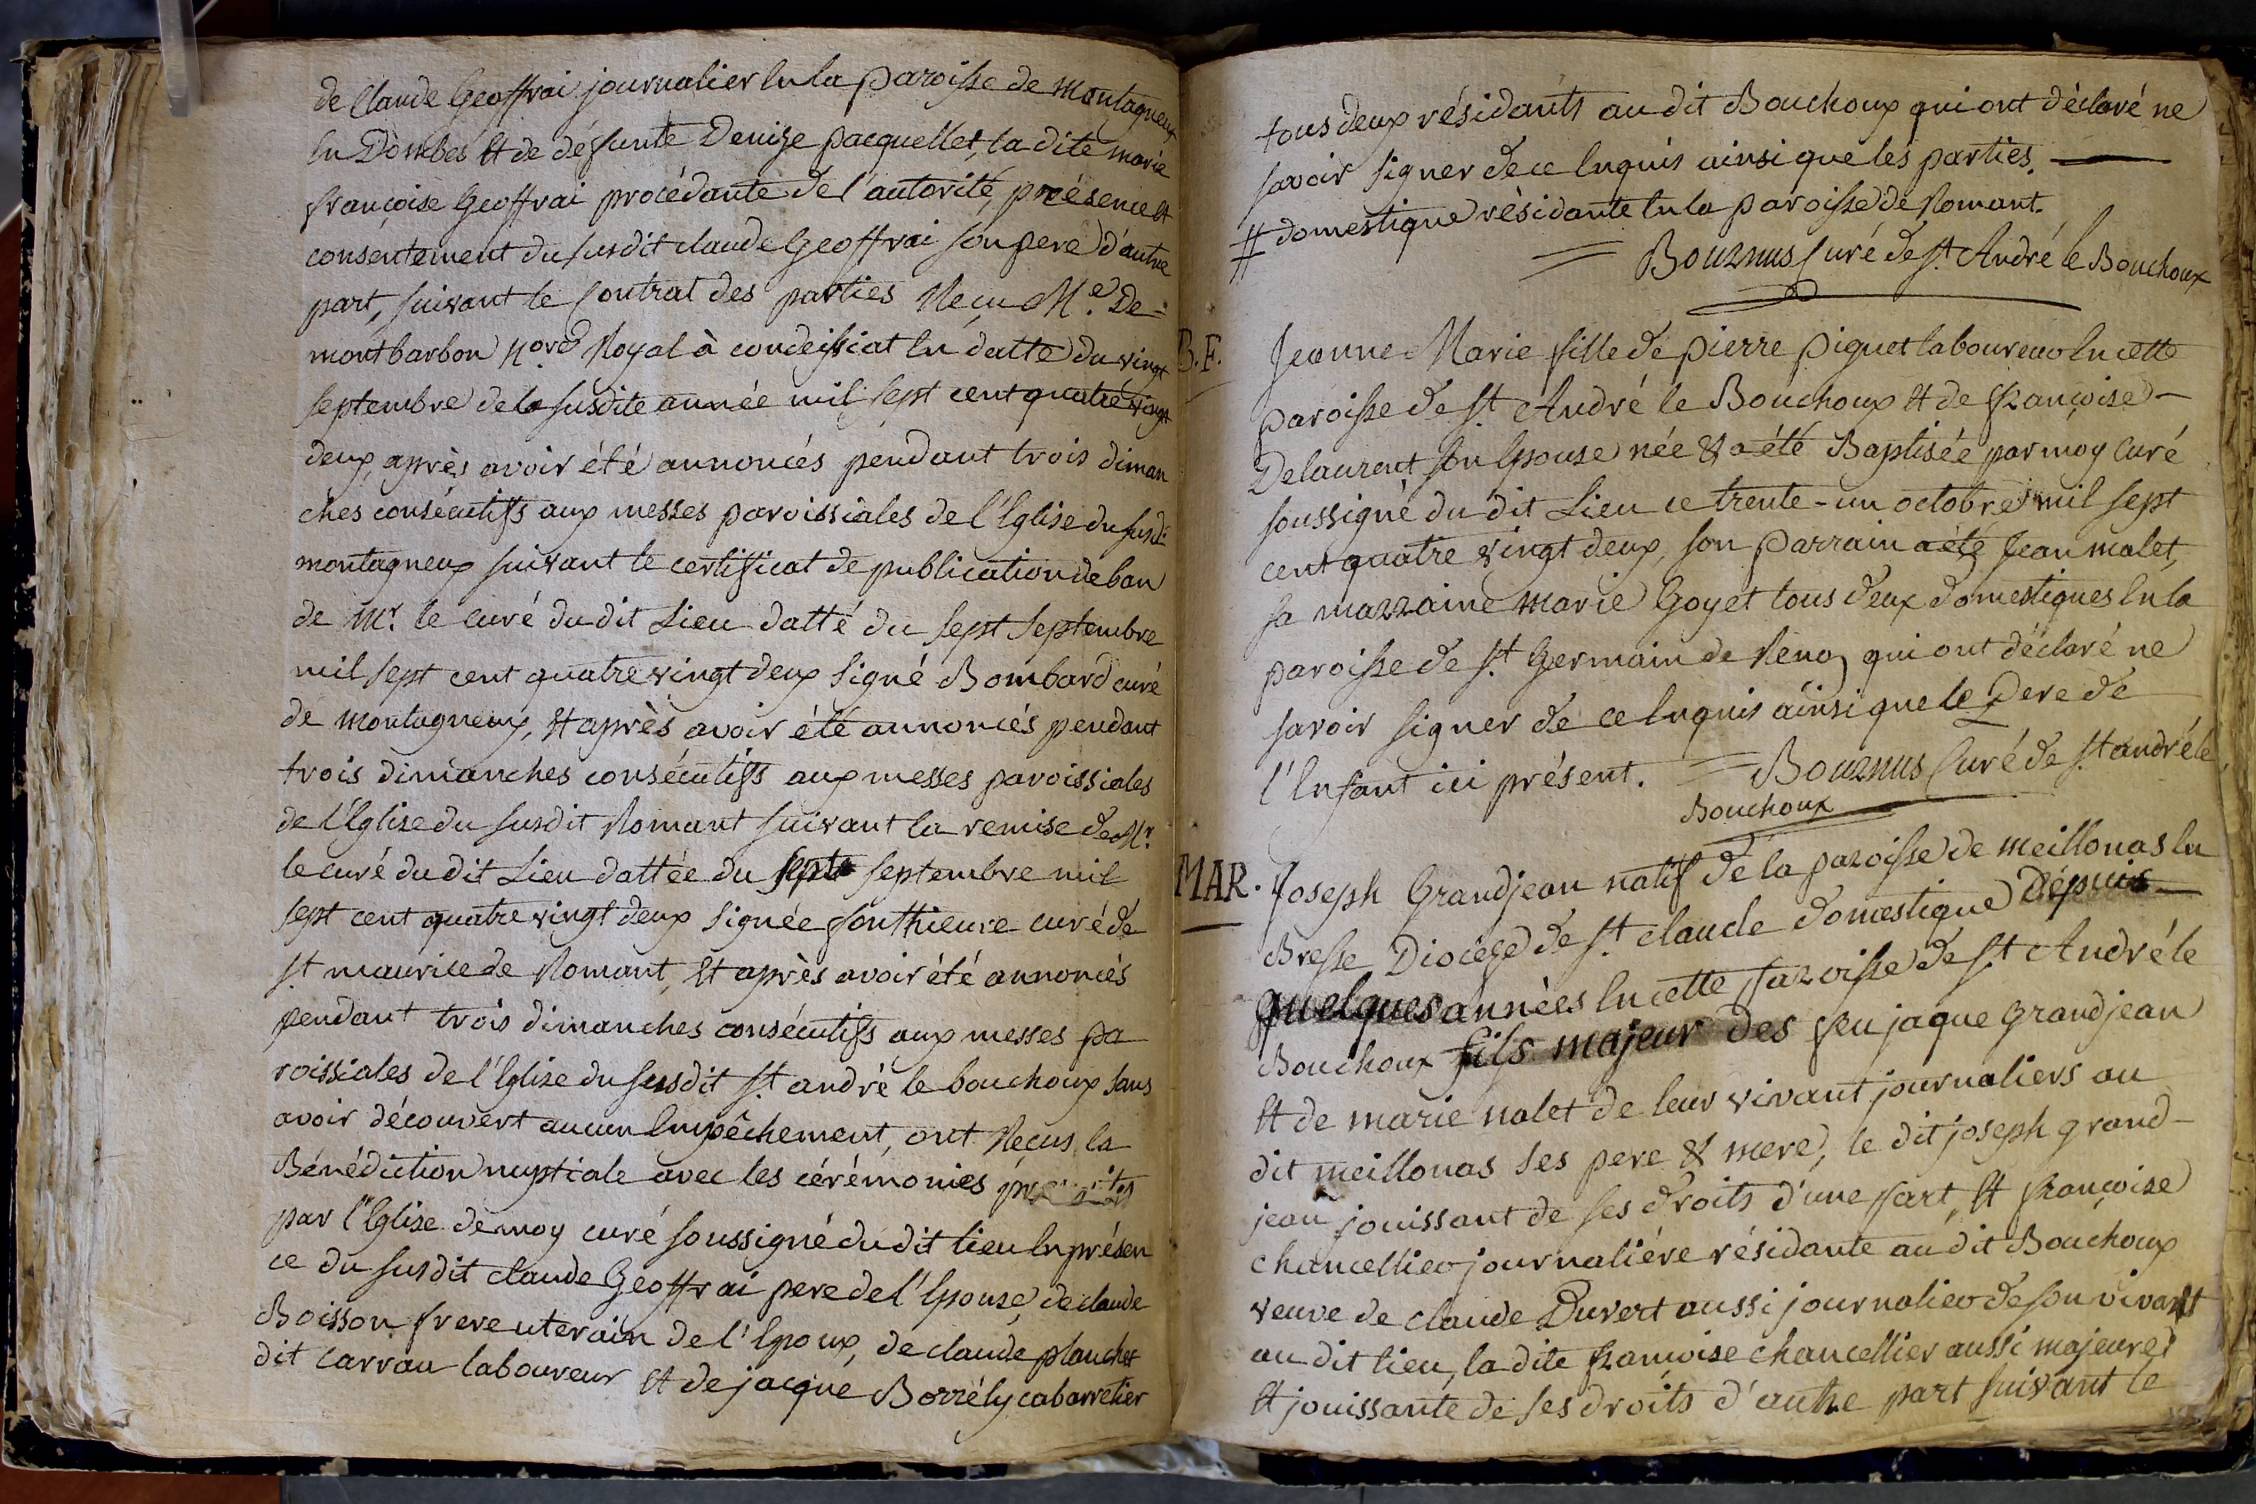 de Claude Geoffrai journalier En la paroisse de Montagneux
En Dombes Et de défunte Denise pacquellet, la dite marie
françoise Geoffrai procédante de l'autorité, présence Et
consentement du susdit claude Geoffrai son pere d'autre
part, suivant le Contrat des parties Reçu Me. De-
montbarbon Nore Royal à condeissiat En datte du vingt
septembre de la susdite année mil sept cent quatre vingt
deux, après avoir été annoncés pendant trois diman
ches consécutifs aux messes paroissiales de l'Eglise du susdit
montagneux suivant le certificat de publication de ban
de Mr. le curé du dit Lieu datté du sept septembre
mil sept cent quatre vingt deux signé Bombard curé
de montagneux, Et après avoir été annoncés pendant
trois dimanches consécutifs aux messes paroissiales
de l'Eglise du susdit Romant suivant la remise de Mr.
le curé du dit Lieu dattée du sept septembre mil
sept cent quatre vingt deux signée fonthieure curé de
st. maurice de Romant, Et après avoir été annoncés
pendant trois dimanches consécutifs aux messes pa
roissiales de l'Eglise du susdit st. andré le bouchoux sans
avoir découvert aucun Empêchement, ont Reçus la
Bénédiction nuptiale avec les cérémonies
par l'Eglise de moy curé soussigné du dit lieu En présen
ce du susdit claude Geoffrai pere de l'Epouse, de claude
Boisson frere uterain de l'Epoux, de claude planchet
dit carrau laboureur Et de jacque Borrély cabarretier
tous deux résidants au dit Bouchoux qui ont déclaré ne
savoir signer de ce Enquis ainsi que les parties.
# domestique résidante En la paroisse de Romant.
Bouznus Curé de st. André le Bouchoux
B. F.
Jeanne Marie fille de pierre piguet laboureur En cette
paroisse de st. André le Bouchoux Et de françoise
Delaurent son Epouse née & a été Baptisée par moy Curé
soussigné du dit Lieu ce trente-un octobre mil sept
cent quatre vingt deux, son parrain a été Jean malet,
sa marraine marie Goyet tous deux domestiques En la
paroisse de st. Germain de Renon qui ont déclaré ne
savoir signer de ce Enquis ainsi que le Pere de
l'Enfant ici présent. Bouznus Curé de st. andré le
Bouchoux
MAR. Joseph Grandjean natif de la paroisse de meillonas En
Bresse Diocèse de st. claude domestique Depuis
quelques années En cette paroisse de st. André le
Bouchoux fils majeur des feu jaque grandjean
Et de marie nalet de leur vivant journaliers au
dit meillonas ses pere & mere, le dit joseph grand-
jean jouissant de ses droits d'une part, Et françoise
chancellier journaliére résidante au dit Bouchoux
veuve de claude Duvert aussi journalier de son vivant
au dit lieu, la dite françoise chancellier aussi majeure
Et jouissante de ses droits d'autre part suivant le